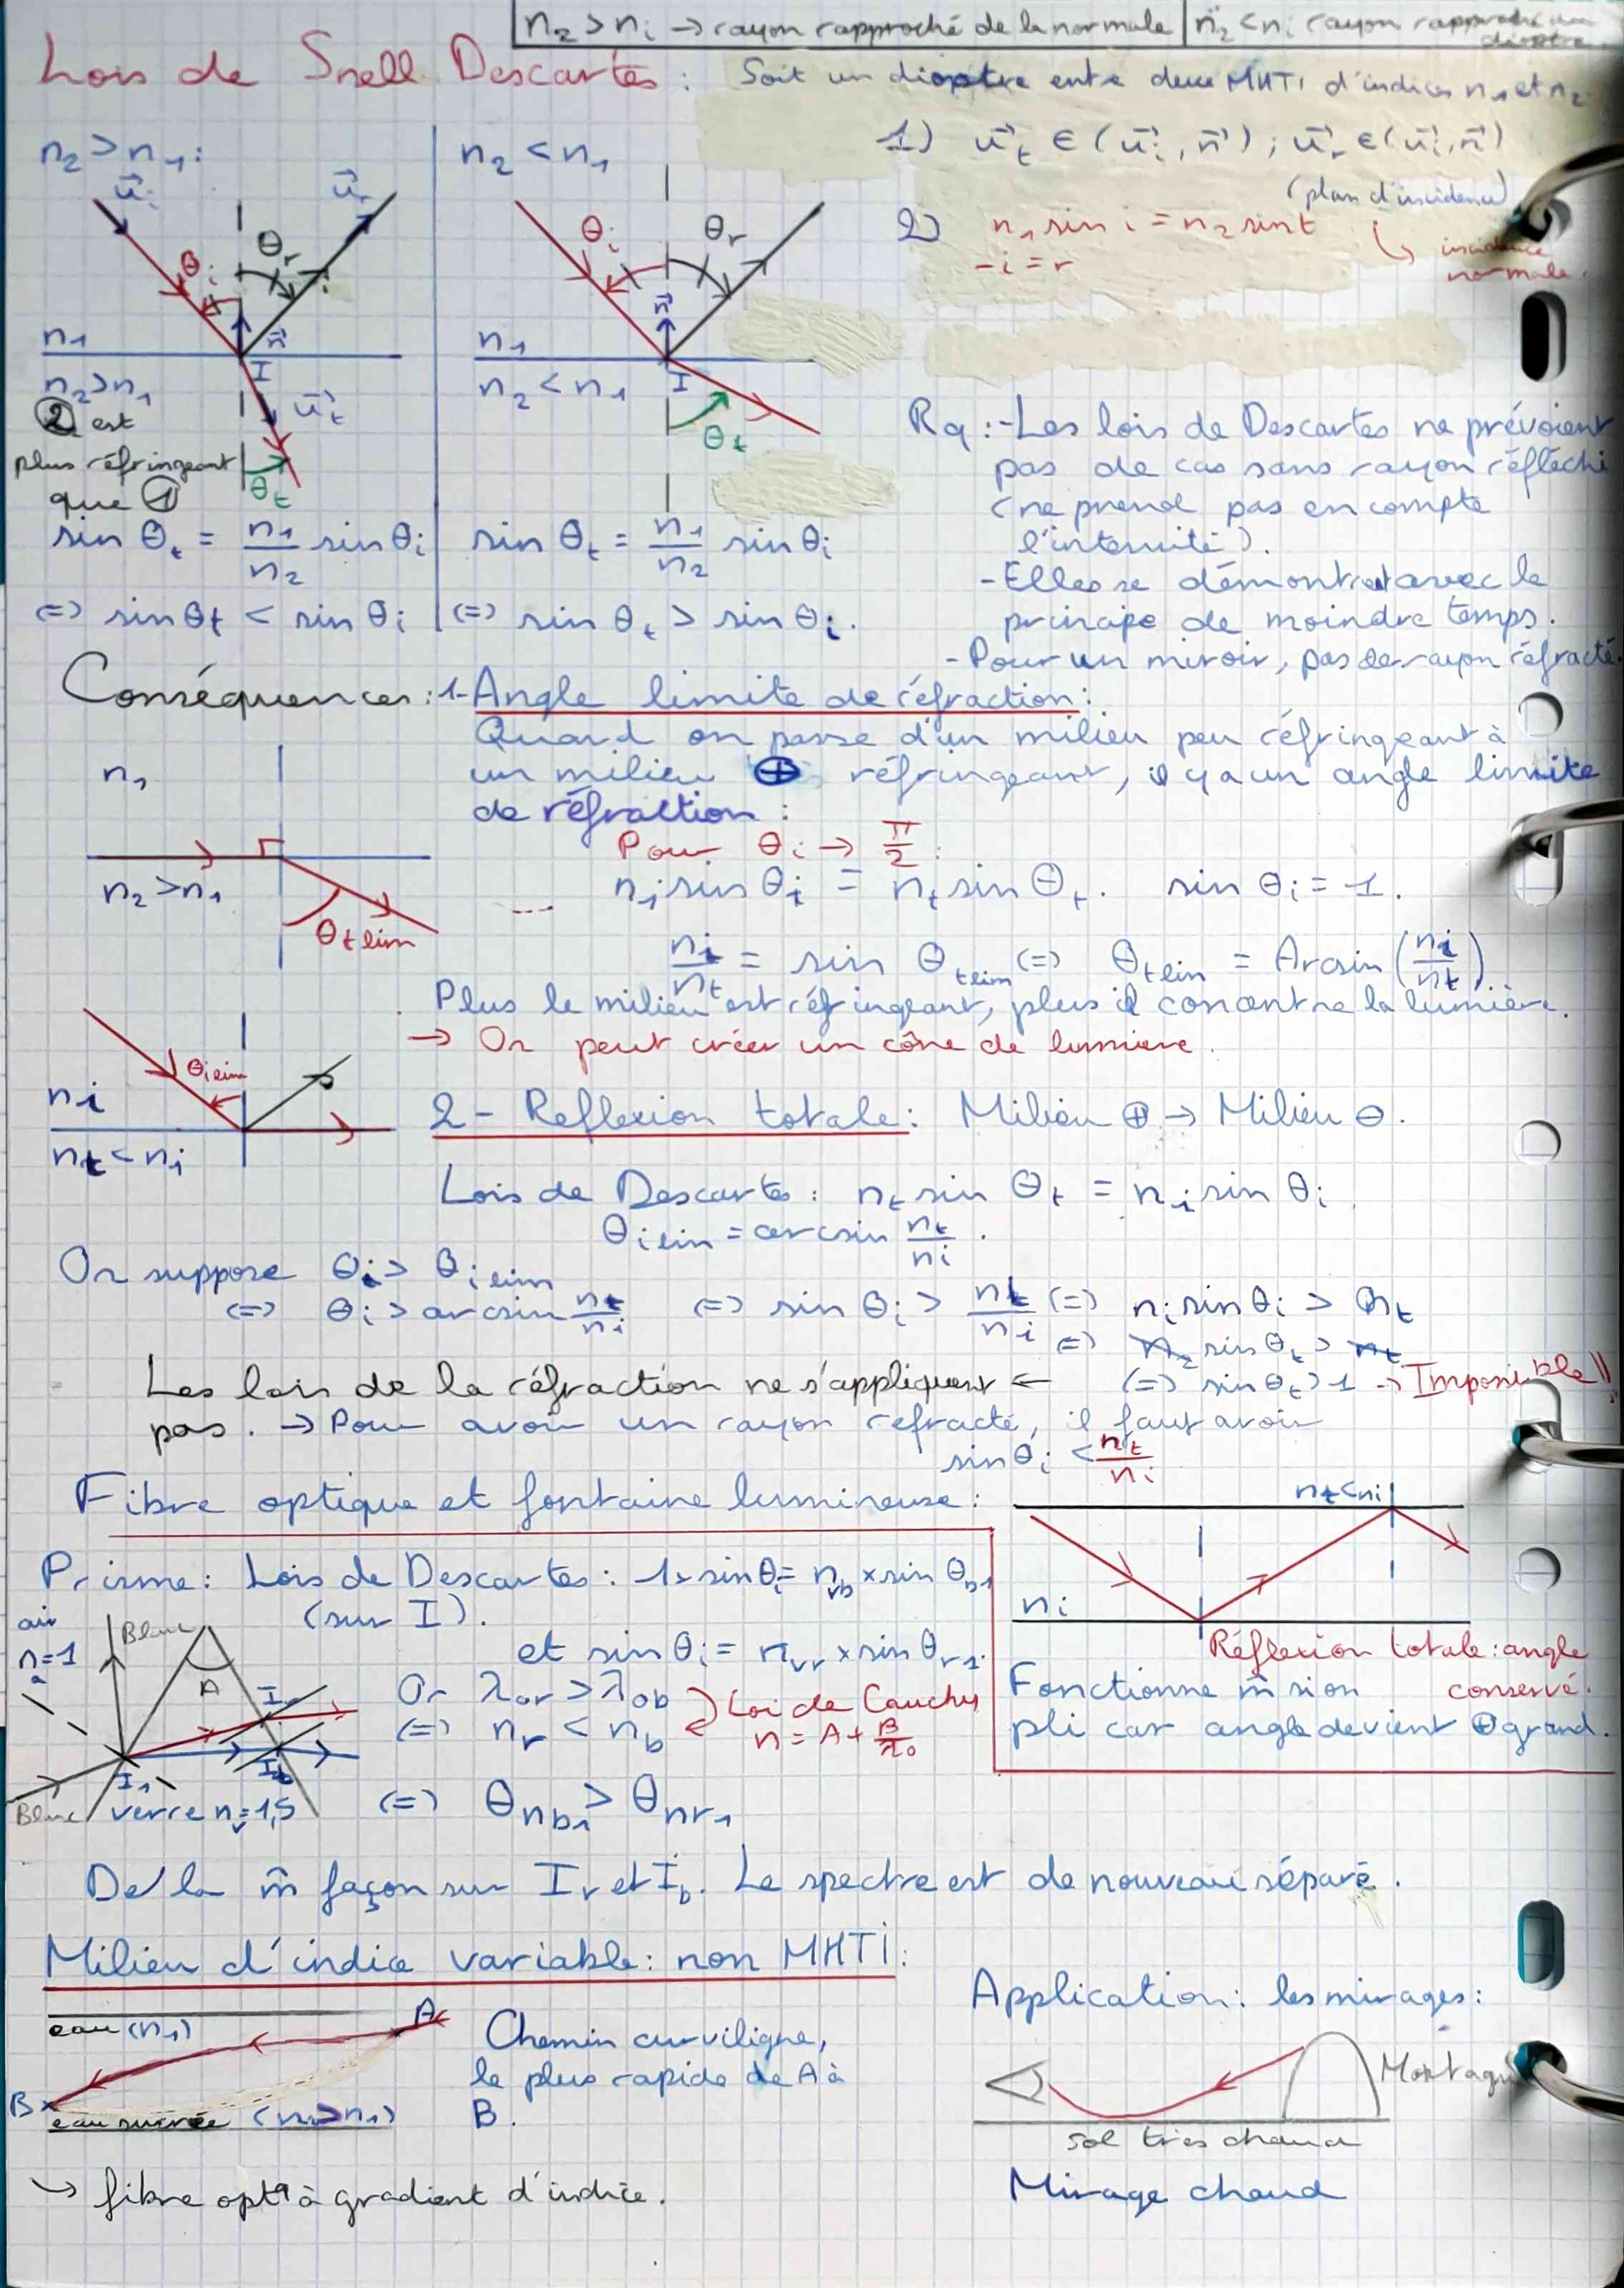 n₂ > n₁ → rayon rapproché de la normale | n₂ < n₁ rayon rapproché du dioptre
Lois de Snell Descartes : Soit un dioptre entre deux MHTI d'indices n₁ et n₂
n₂ > n₁ :
n₂ < n₁
1) u⃗t ∈ (u⃗i, n⃗) ; u⃗r ∈ (u⃗i, n⃗)
(plan d'incidence)
2) n₁ sin i = n₂ sin t
- i = r
↳ incidence normale.
u⃗i
u⃗r
θi
θr
n⃗
n₁
I
n₂ > n₁
u⃗t
② est
plus réfringeant
que ①
θt
θi
θr
n⃗
n₁
n₂ < n₁
I
θt
sin θt = n₁/n₂ sin θi
<=> sin θt < sin θi
sin θt = n₁/n₂ sin θi
<=> sin θt > sin θi.
Rq : - Les lois de Descartes ne prévoient
pas de cas sans rayon réfléchi
(ne prend pas en compte
l'intensité).
- Elles se démontrent avec le
principe de moindre temps.
- Pour un miroir, pas de rayon réfracté.
Conséquences : 1- Angle limite de réfraction :
Quand on passe d'un milieu peu réfringeant à
un milieu ⊕ réfringeant, il y a un angle limite
de réfraction :
n₁
n₂ > n₁
θt lim
Pour θi → π/2 :
ni sin θi = nt sin θt. sin θi = 1.
ni/nt = sin θt lim <=> θt lim = Arcsin (ni/nt)
Plus le milieu est réfringeant, plus il concentre la lumière.
→ On peut créer un cône de lumière.
θi lim
ni
nt < ni
2 - Reflexion totale : Milieu ⊕ → Milieu ⊖.
Lois de Descartes : nt sin θt = ni sin θi
θi lim = arcsin nt/ni.
On suppose θi > θi lim
<=> θi > arcsin nt/ni <=> sin θi > nt/ni <=> ni sin θi > nt
<=> n₂ sin θt > nt
Les lois de la réfraction ne s'appliquent ← <=> sin θt > 1 → Impossible !!
pas. → Pour avoir un rayon refracté, il faut avoir
sin θi < nt/ni
Fibre optique et fontaine lumineuse :
nt < ni
ni
Réflexion totale : angle
conservé.
Fonctionne m̂ si on
pli car angle devient ⊕ grand.
Prisme : Lois de Descartes : 1 × sin θi = nvb × sin θb1
(sur I).
et sin θi = nvr × sin θr1.
air
n = 1
a
Blanc
A
Ir
I₁
Ib
Blanc
verre nv = 1,5
Or λor > λob
<=> nr < nb
Loi de Cauchy
n = A + B/λ₀
<=> θnb1 > θnr1
De la m̂ façon sur Ir et Ib. Le spectre est de nouveau séparé.
Milieu d'indice variable : non MHTI :
eau (n₁)
A
B
eau sucrée (n₂ > n₁)
Chemin curviligne,
le plus rapide de A à
B.
↳ fibre optq à gradient d'indice.
Application : les mirages :
Montagne
sol très chaud
Mirage chaud